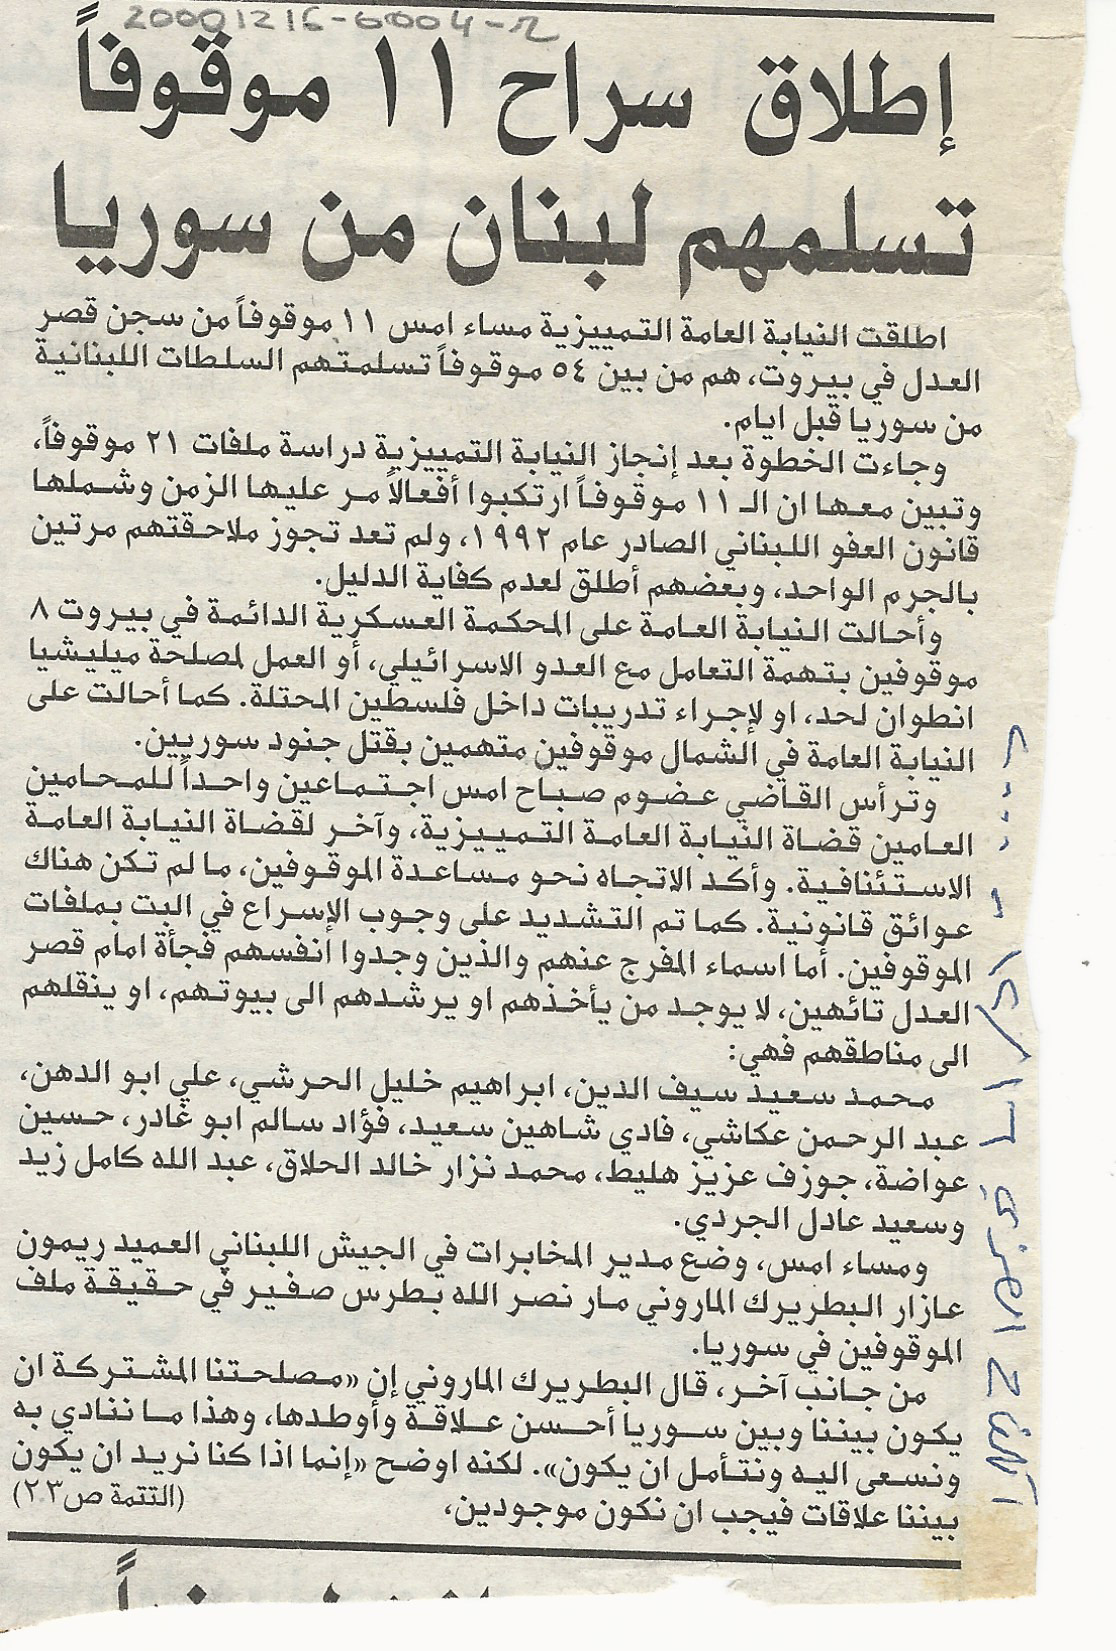 20001216-0004-r
إطلاق سراح ١١ موقوفاً
تسلمهم لبنان من سوريا
اطلقت النيابة العامة التمييزية مساء امس ١١ موقوفاً من سجن قصر
العدل في بيروت، هم من بين ٥٤ موقوفاً تسلمتهم السلطات اللبنانية
من سوريا قبل ايام.
وجاءت الخطوة بعد إنجاز النيابة التمييزية دراسة ملفات ٢١ موقوفاً،
وتبين معها ان الـ ١١ موقوفاً ارتكبوا أفعالاً مر عليها الزمن وشملها
قانون العفو اللبناني الصادر عام ١٩٩٢، ولم تعد تجوز ملاحقتهم مرتين
بالجرم الواحد، وبعضهم أطلق لعدم كفاية الدليل.
وأحالت النيابة العامة على المحكمة العسكرية الدائمة في بيروت ٨
موقوفين بتهمة التعامل مع العدو الاسرائيلي، أو العمل لمصلحة ميليشيا
انطوان لحد، او لإجراء تدريبات داخل فلسطين المحتلة. كما أحالت على
النيابة العامة في الشمال موقوفين متهمين بقتل جنود سوريين.
وترأس القاضي عضوم صباح امس اجتماعين واحداً للمحامين
العامين قضاة النيابة العامة التمييزية، وآخر لقضاة النيابة العامة
الاستئنافية. وأكد الاتجاه نحو مساعدة الموقوفين، ما لم تكن هناك
عوائق قانونية. كما تم التشديد على وجوب الإسراع في البت بملفات
الموقوفين. أما اسماء المفرج عنهم والذين وجدوا انفسهم فجأة امام قصر
العدل تائهين، لا يوجد من يأخذهم او يرشدهم الى بيوتهم، او ينقلهم
الى مناطقهم فهي:
محمد سعيد سيف الدين، ابراهيم خليل الحرشي، علي ابو الدهن،
عبد الرحمن عكاشي، فادي شاهين سعيد، فؤاد سالم ابو غادر، حسين
عواضة، جوزف عزيز هليط، محمد نزار خالد الحلاق، عبد الله كامل زيد
وسعيد عادل الجردي.
ومساء امس، وضع مدير المخابرات في الجيش اللبناني العميد ريمون
عازار البطريرك الماروني مار نصر الله بطرس صفير في حقيقة ملف
الموقوفين في سوريا.
من جانب آخر، قال البطريرك الماروني إن «مصلحتنا المشتركة ان
يكون بيننا وبين سوريا أحسن علاقة وأوطدها، وهذا ما ننادي به
ونسعى اليه ونتأمل ان يكون». لكنه اوضح «إنما اذا كنا نريد ان يكون
بيننا علاقات فيجب ان نكون موجودين، (التتمة ص٢٣)